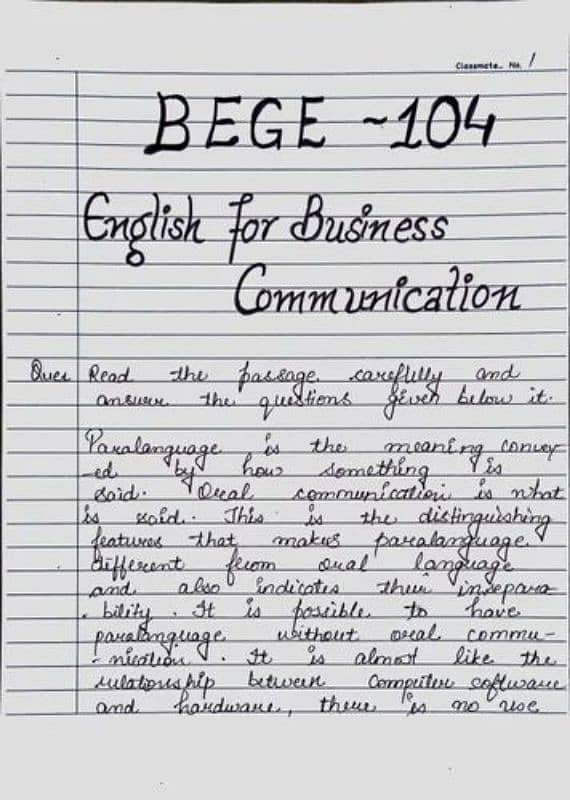 Classmate. No. 1
BEGE ~104
English for Business
Communication
Ques Read the passage carefully and
answer the questions given below it.
Paralanguage is the meaning convey
-ed by how something is
said. Oral communication is what
is said. This is the distinguishing
features that makes paralanguage.
different from oral language
and also indicates their insepara
- bility. It is possible to have
paralanguage without oral commu-
- nication. It is almost like the
relationship between Computer software
and hardware, there is no use